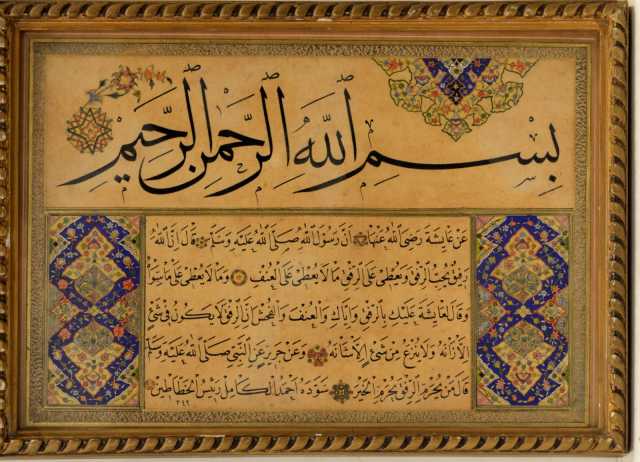 بِسْمِ اللهِ الرَّحْمنِ الرَّحِيمِ
عَنْ عَايِشَةَ رَضِىَ اللهُ عَنْهَا اَنَّ رَسُولَ اللهِ صَلَّى اللهُ عَلَيْهِ وَسَلَّمَ قَالَ اِنَّ اللهَ
رَفِيقٌ يُحِبُّ الرِّفْقَ وَيُعْطِى عَلَى الرِّفْقِ مَا لَا يُعْطِى عَلَى الْعُنْفِ وَمَا لَا يُعْطِى عَلَى مَا سِوَاهُ
وَقَالَ لِعَايِشَةَ عَلَيْكِ بِالرِّفْقِ وَاِيَّاكِ وَالْعُنْفَ وَالْفُحْشَ اِنَّ الرِّفْقَ لَا يَكُونُ فِى شَىْءٍ
اِلَّا زَانَهُ وَلَا يُنْزَعُ مِنْ شَىْءٍ اِلَّا شَانَهُ وَعَنْ جَرِيرٍ عَنِ النَّبِىِّ صَلَّى اللهُ عَلَيْهِ وَسَلَّمَ
قَالَ مَنْ يُحْرَمِ الرِّفْقَ يُحْرَمِ الْخَيْرَ سَوَّدَهُ اَحْمَدُ الْكَامِل رَئِيسُ الْخَطَّاطِينَ